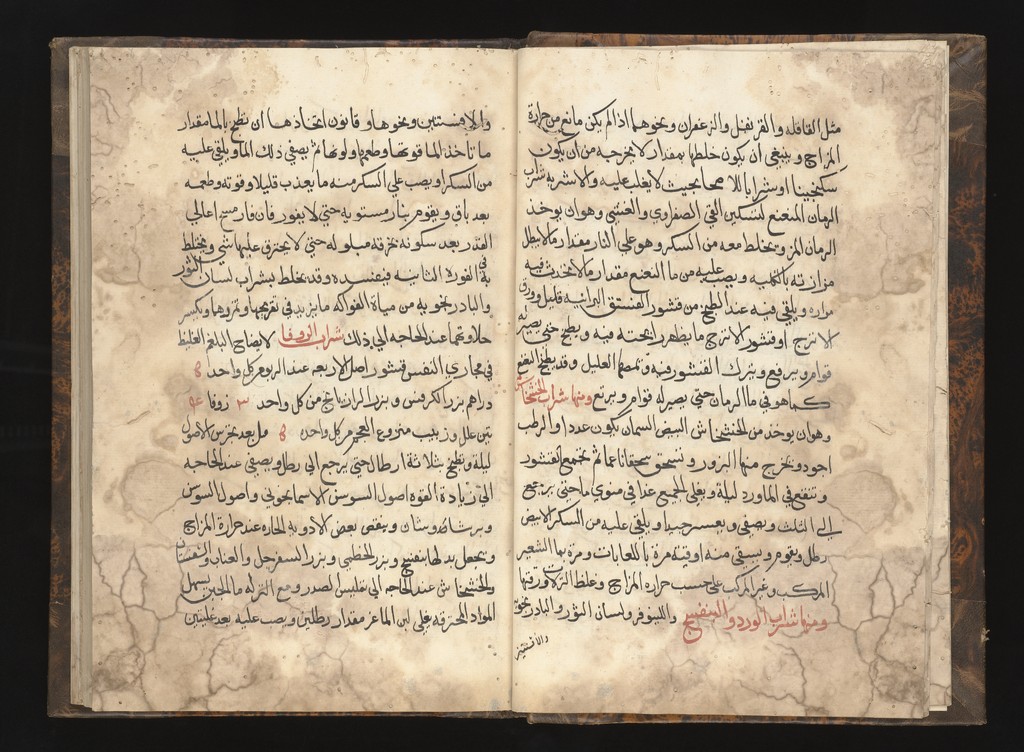 مثل القاقله والقرنفل والزعفران ونحوها اذا لم يكن مانع من حرارة
المزاج وينبغي ان يكون خلطها بمقدار لا يخرجه من ان يكون
سكنجبينا او شرابا بحيث لا يغلب عليه والاشربه شراب
الرمان المنعنع لتسكين القي الصفراوي والغشي وهو ان يوخذ
الرمان المز ويخلط معه من السكر وهو على النار مقدار ما لا يبطل
مزازته بالكليه ويصب عليه من ما النعنع مقدار ما لا يحدث فيه
مراره ويلقى فيه عند الطبخ من قشور الفستق البرانيه قليل وورق
الاترج او قشور الاترج ما يظهر رايحته فيه ويطبخ حتى يصير له
قوام ويرفع ويترك القشور فيه وقد يطبخ النعنع
كما هو في ما الرمان حتى يصير له قوام ويرفع ومنها شراب الخشخاش
وهو ان يوخذ من الخشخاش البيض السمان يكون عددا والرطب
اجود ويخرج منها البزور وتسحق سحقا ناعما ثم يجمع القشور
وتنقع في الماورد ليلة ويغلى الجميع غدا في ما حتى يرجع
الى الثلث ويصفى ويعصر جيدا ويلقى عليه من السكر الابيض
رطل ويقوم ويسقى منه اوقية مرة باللعابات ومرة بما الشعير
المركب وغير المركب على حسب حراره المزاج وغلظ النزلة ورقتها
ومنها شراب الورد والبنفسج والنيلوفر ولسان الثور والبادرنجويه
والافسنتين
والافسنتين ونحوها وقانون اتخاذها ان تطبخ بالما مقدار
ما تاخذ الما قوتها وطعمها ولونها ثم يصفى ذلك الما ويلقى عليه
من السكر او يصب على السكر منه ما يعذب قليلا وقوته وطعمه
بعد باق ويقوم بنار مستويه حتى لا يفور فان فار مسح اعالي
القدر بعد سكونه بخرقه مبلوله حتى لا يحترق عليها شي ويختلط
به في الفورة الثانيه فيفسده وقد يخلط بشراب لسان الثور
والبادرنجويه من مياه الفواكه ما يزيد في تفريحها ويكسر
حلاوتهما عند الحاجه الى ذلك شراب الزوفا لانضاج البلغم الغليظ
في مجاري النفس قشور اصل الاربعه من كل واحد ٥
دراهم بزر الكرفس وبزر الرازيانج من كل واحد ٣ زوفا
تين علك وزبيب منزوع العجم من كل واحد ٥ بعد الاصول
ليلة ويطبخ بثلاثة ارطال حتى يرجع الى رطل ويصفى عند الحاجه
الى زيادة القوه اصول السوسن الاسمانجوني واصول السوس
وبرشاوشان وينقص بعض الادويه الحاره عند حرارة المزاج
ويجعل بدلها بنفسج وبزر الخطمي وبزر السفرجل والعناب والسپستان
والخشخاش عند الحاجه الى تمليس الصدر ومع النزله ما الجبن يسهل
المواد المحترقه يغلى لبن الماعز مقدار رطلين ويصب عليه بعد غليتين